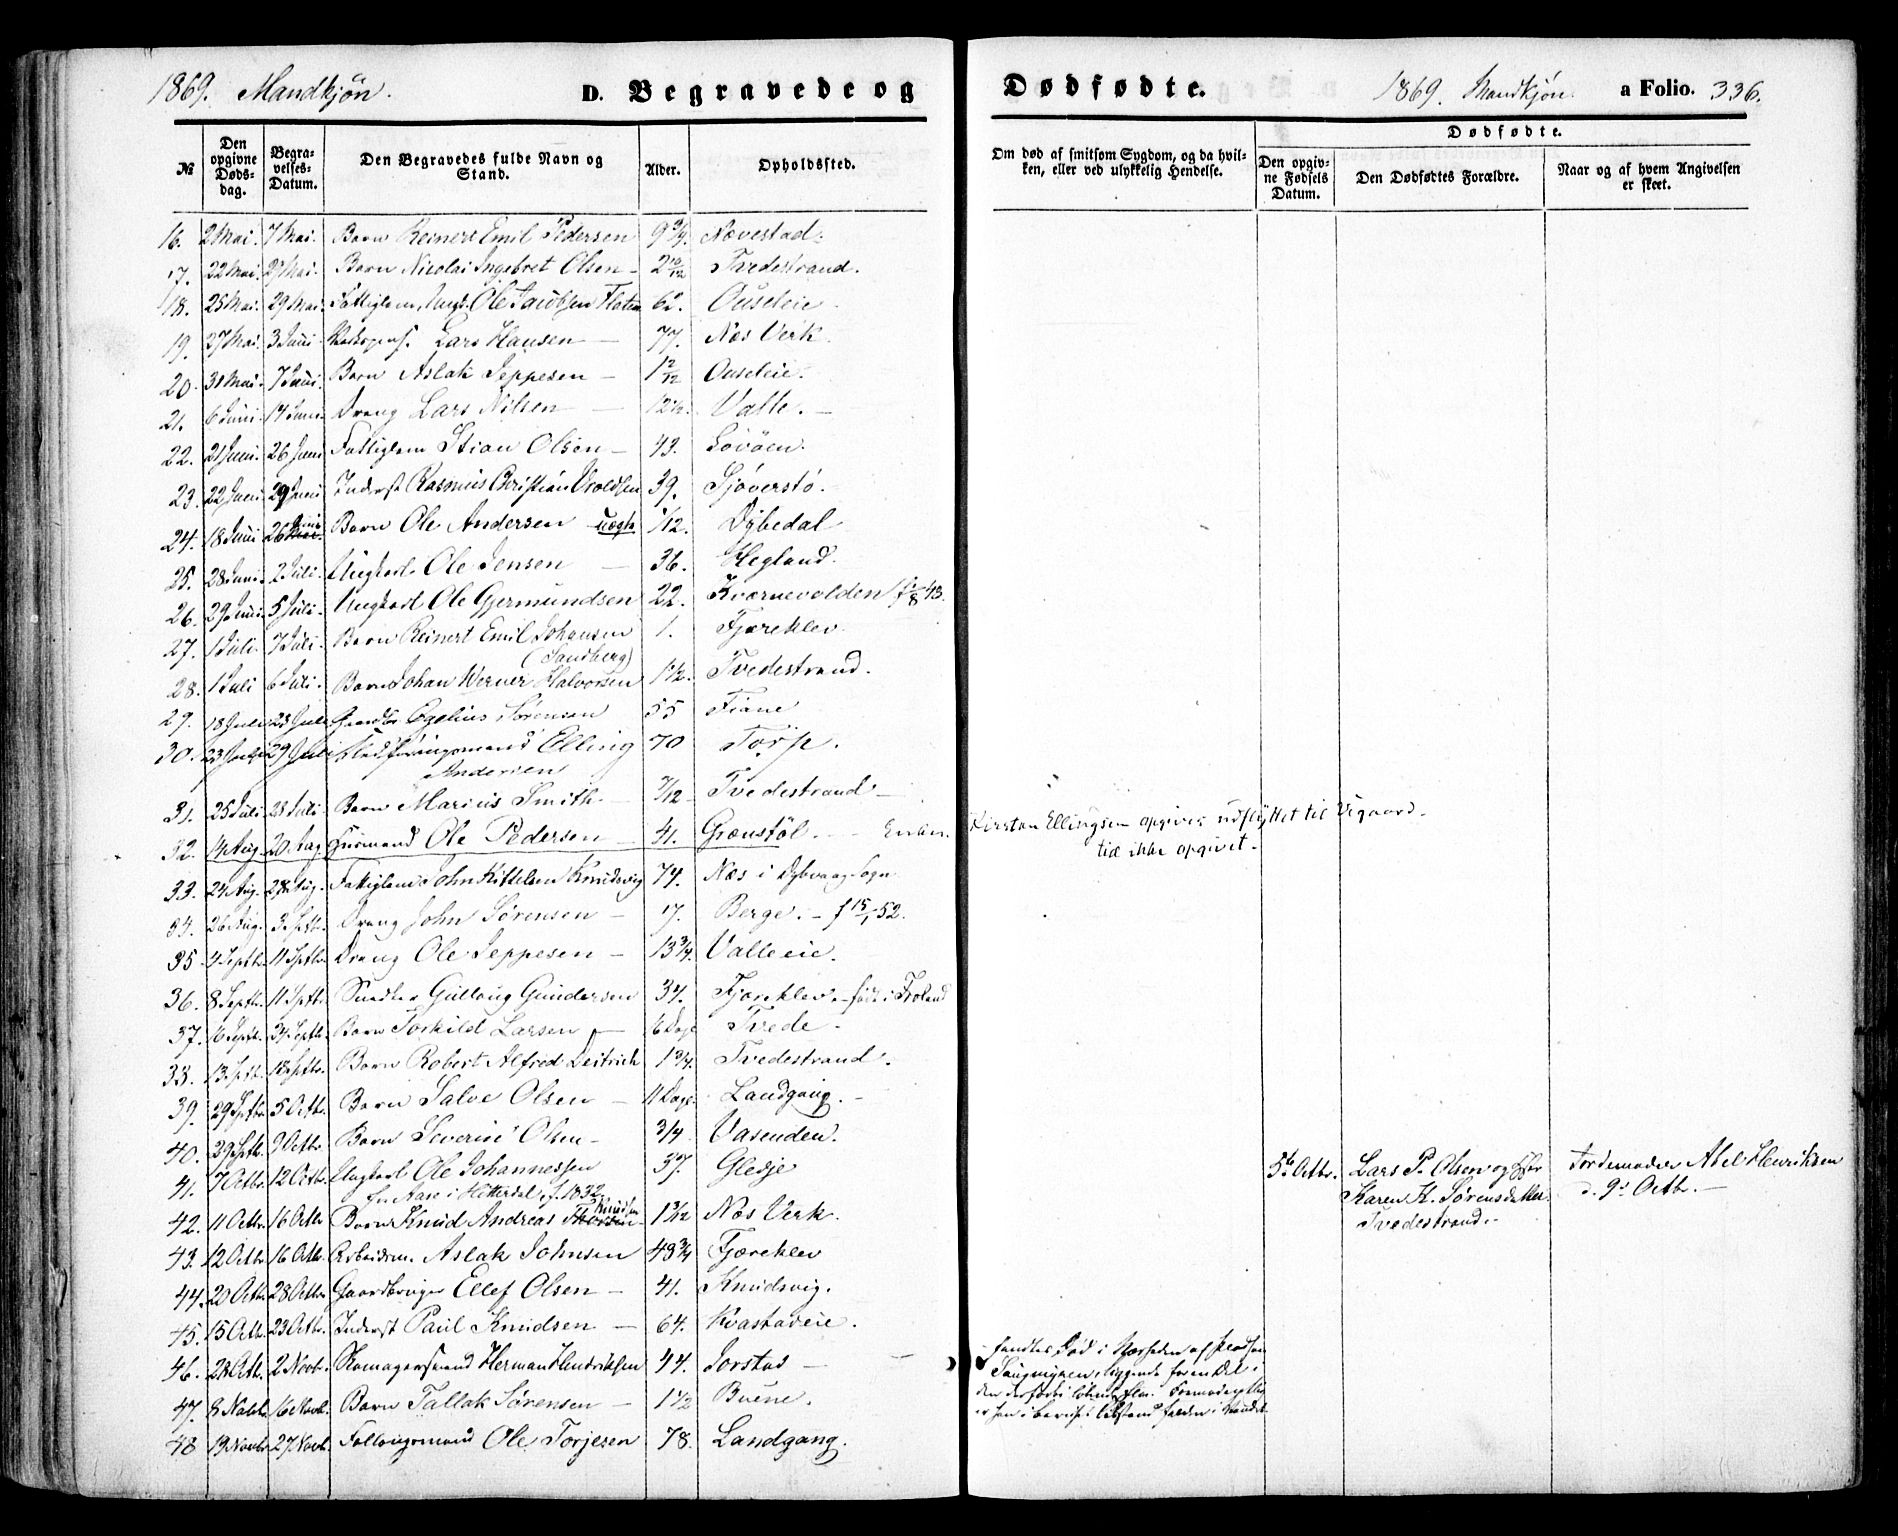 1869. Mandkjön.
D. Begravede og
Dødfødte.
1869. Mandkjön.
a Folio. 336.
№
Den opgivne Døds- dag.
Begra- velses- Datum.
Den Begravedes fulde Navn og Stand.
Alder.
Opholdssted.
Om død af smitsom Sygdom, og da hvil- ken, eller ved ulykkelig Hendelse.
Dødfødte.
Den opgiv- ne Fødsels Datum.
Den Dødfødtes Forældre.
Naar og af hvem Angivelsen er skeet.
16. 2 Mai. 7 Mai. Barn Reinert Emil Pedersen 9 3/4. Nævestad.
17. 22 Mai. 27 Mai. Barn Nicolai Ingebret Olsen 2 10/12 Tvedestrand.
18. 25 Mai. 29 Mai. Fattiglem, Ole Jacobsen Flaten 62. Ouseeie
19. 27 Mai. 3 Juni Lars Hansen 77. Næs Verk.
20. 31 Mai. 7 Juni. Barn Aslak Jeppesen 1 2/12 Ouseeie.
21. 6 Juni. 14 Juni. Dreng Lars Nilsen 12 1/2. Valle.
22. 21 Juni. 26 Juni Fattiglem Stian Olsen 43. Lövöen.
23. 22 Juni 29 Juni Inderst Rasmus Christian Vroldsen 39. Sjöverstö.
24. 18 Juni 26 Juni Barn Ole Andersen uægte 1/12. Dybedal
25. 28 Juni. 2 Juli. Ungkarl Ole Jensen 36. Hegland.
26. 29 Juni. 5 Juli. Ungkarl Ole Gjermundsen 22. Kværnevolden
27. 1 Juli. 7 Juli. Barn Reinert Emil Johansen 1. Fjæreklev.
(Sandberg)
28. 1 Juli 6 Juli. Barn Johan Werner Halvorsen 1 1/2. Tvedestrand.
29. 18 Juli 23 Juli Gaardbr Sörensen 55 Fiane
30. 23 Juli 29 Juli Elling 70 Torp.
Andersen
31. 25 Juli 28 Juli. Barn Marius Smith. 7/12 Tvedestrand
32. 14 Aug. 20. Aug Husmand Ole Pedersen 41. Grænstöl. Enken Kirsten Ellingsen opgives udflyttet til Vegaard.
tid ikke opgivet.
33. 24 Aug. 28 Aug. Fattiglem John Kittelsen Knudsvig 74. Næs i Dybvaag Sogn
34. 26 Aug. 3. Septb. Dreng John Sörensen 17. Berge. f 15/1 52.
35. 4 Septb. 11 Septb. Dreng Ole Jeppesen 13 3/4. Valleeie.
36. 8 Septb. 11 Septb. Snedker Gullaug Gundersen 34. Fjæreklev. født i Froland
37. 16 Septb. 24 Septb. Barn Torkild Larsen 6 Dage Tvede.
38. 13 Septb. 18 Septb. Barn Robert Alfred Deitrich 1 3/4. Tvedestrand.
39. 29 Septb. 5 Octb. Barn Salve Olsen 11 Dage. Landgang.
40. 29 Septb. 9 Octb. Barn Severin Olsen 3/4 Vasenden.
41. 7 Octb. 12 Octb. Ungkarl Ole Johannessen 37. Gledje
fra Aase i Hitterdal, f. 1832.
5te Octbr. Lars P. Olsen og Hst
Karen K. Sörensdatter
Tvedestrand.
Jordemoder Abel Henriksen
d. 9de Octbr.
42. 11 Octb. 16 Octb. Barn Knud Andreas Knudsen 1 1/12 Næs Verk.
43. 12 Octb. 16 Octb. Arbeidsm. Aslak Johnsen 43 3/4 Fjæreklev
44. 20 Octb. 28 Octb. Gaardbruger Ellef Olsen 41. Knudsvig.
45. 15 Octb. 23 Octb. Inderst Paul Knudsen 64. Kvastadeie.
46. 28 Octb. 2 Novb. Skomagersvend Herman Hendriksen 44. Jorstad
fandtes Död i Nærheden af
47. 8 Novb. 16 Novb. Barn Tallak Sörensen 1 1/2 Buene.
48 19 Novb. 27 Novb. Ole Torjesen 78. Landgang.